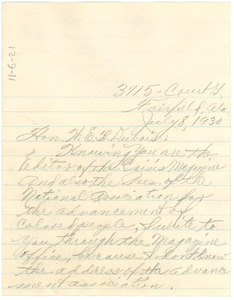 11-9-21
3915-Court G.
Fairfield, Ala
July 8, 1930
Hon. W. E. B. Dubois:
Knowing you are the
Editor of the Crisis Magazine
And also the Pres, of the
National Association for
the advancement of
Colored people, I write to
You, through the Magazine
office, because I don't know
the address of the advance
ment association.